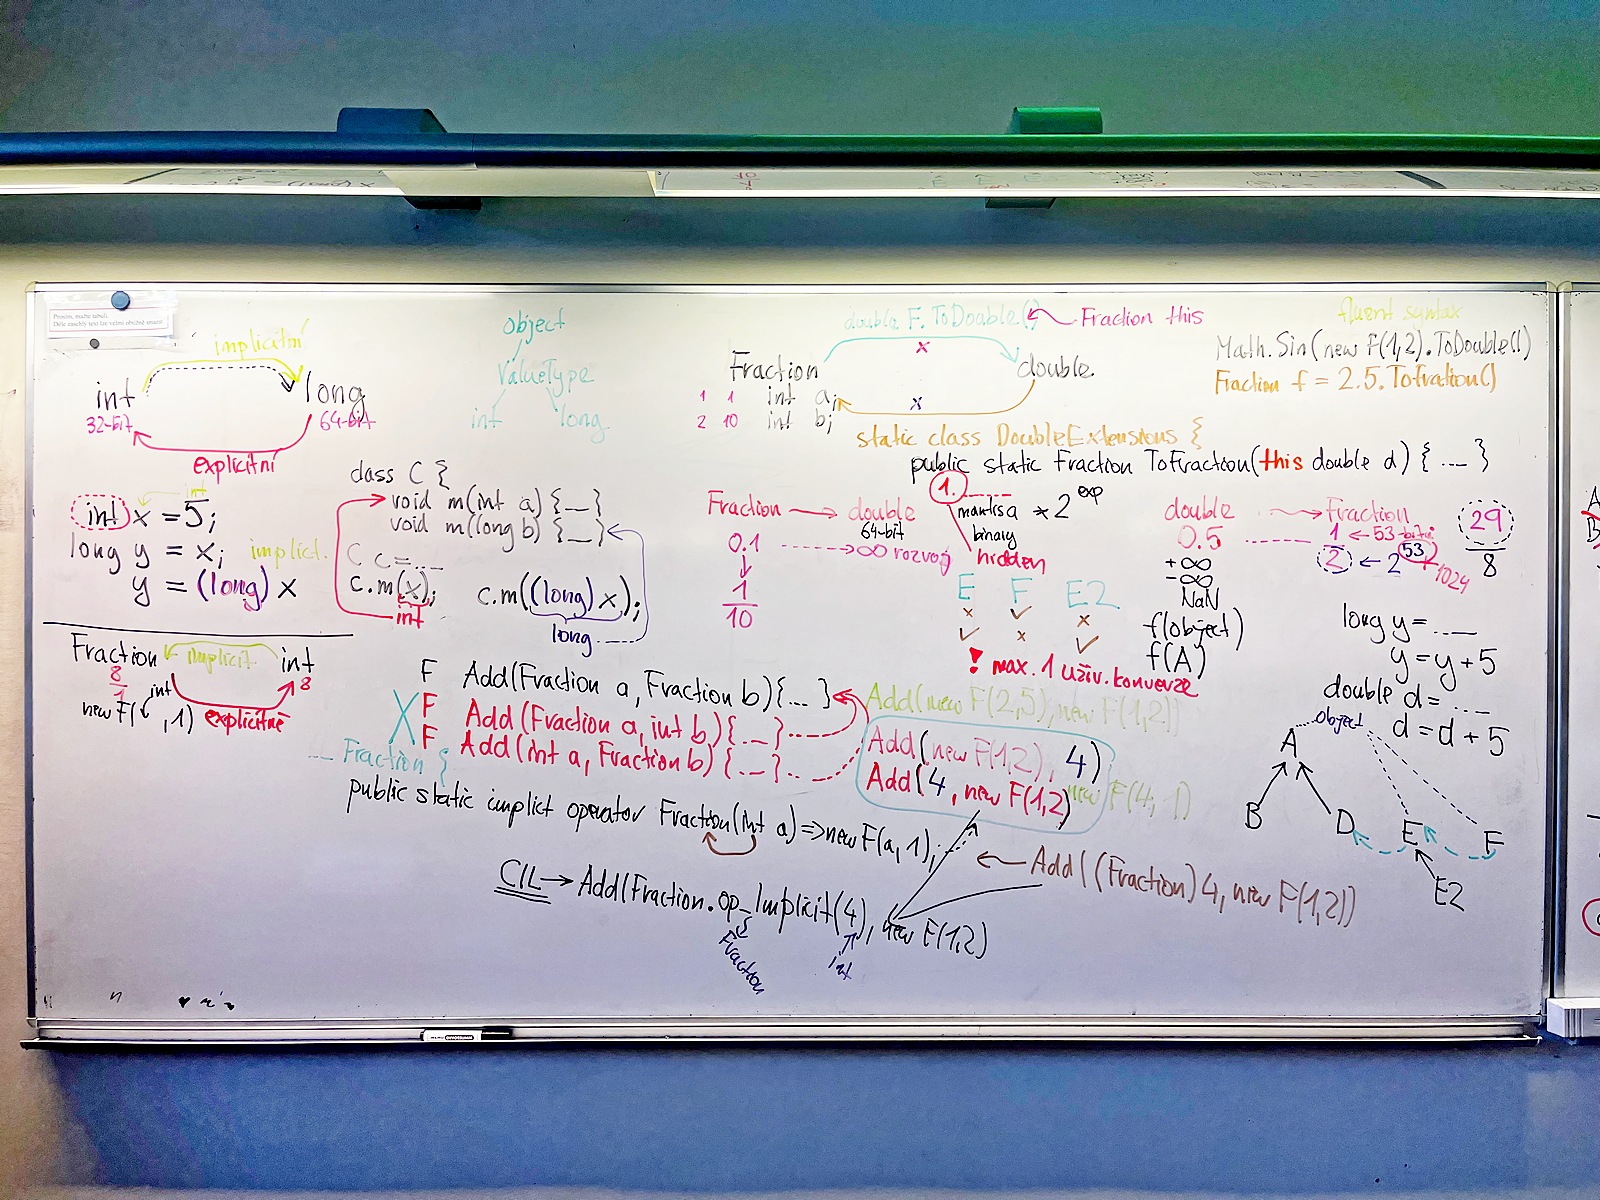 Prosím, mažte tabuli.
implicitní
int
long
32-bit
64-bit
explicitní
int
int x = 5;
long y = x; implicit.
y = (long) x
object
ValueType
int long
class C {
void m(int a) {...}
void m(long b) {...}
C c = ...
c.m(x);
int
c.m((long) x);
long
double F.ToDouble() Fraction this
x
Fraction
double
1 1 int a;
2 10 int b;
x
fluent syntax
Math.Sin(new F(1,2).ToDouble())
Fraction f = 2.5.ToFration()
static class DoubleExtensions {
public static Fraction ToFraction(this double d) { ... }
Fraction → double
64-bit
0.1 → ∞ rozvoj
1
10
1.
mantisa * 2 exp
binary
hidden
E F E2
x ✓ x
✓ x ✓
! max. 1 uživ. konverze
double → Fraction
0.5
1 ← 53-bitů
2 ← 2 53
1024
+∞
-∞
NaN
f(object)
f(A)
29
8
long y = ...
y = y + 5
double d = ...
d = d + 5
object
A
B D E F
E2
Fraction implicit int
8
1
8
int
new F( , 1)
explicitně
F Add(Fraction a, Fraction b){...}
F Add(Fraction a, int b){...}
F Add(int a, Fraction b) {...}
Add(new F(2,5), new F(1,2))
Add(new F(1,2), 4)
Add(4, new F(1,2)
new F(4, 1)
... Fraction {
public static implict operator Fraction(int a) => new F(a, 1);
Add((Fraction) 4, new F(1,2))
CIL → Add(Fraction.op_Implicit(4), new F(1,2)
Fraction
int